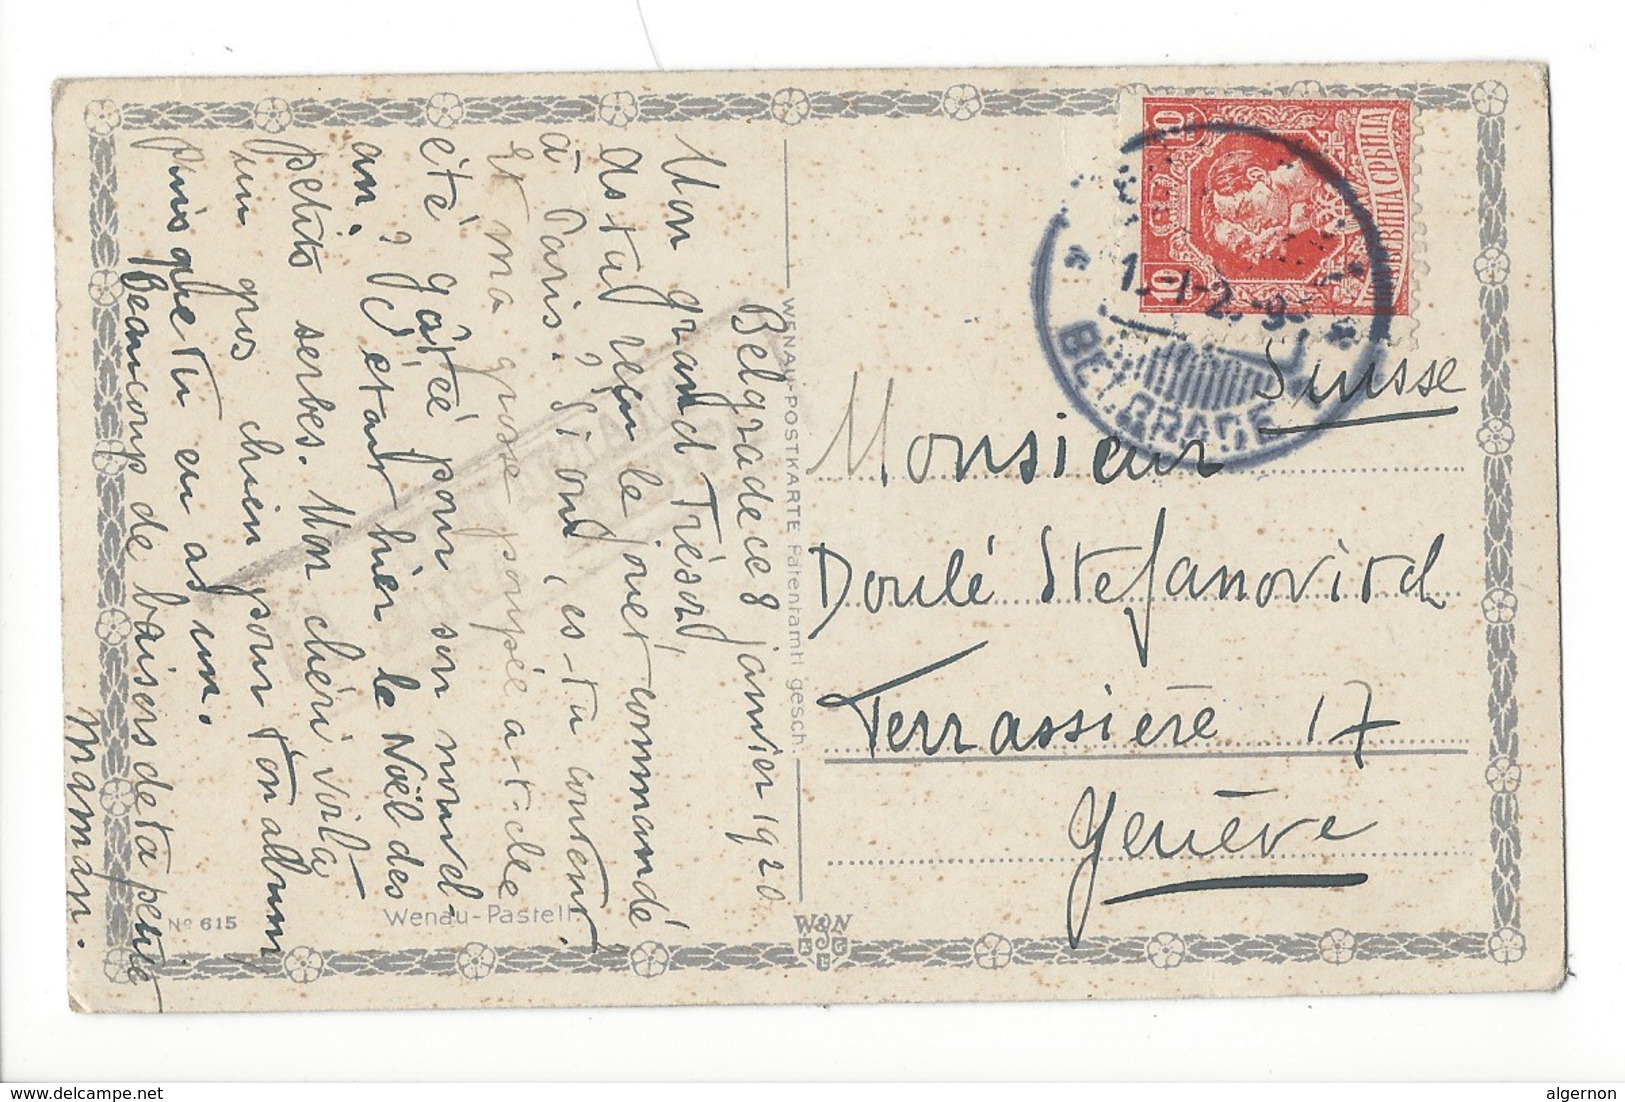 Belgrade ce 8 janvier 1920
Mon grand Trésor,
as-tu reçu le jouet commandé
à Paris? Si oui, es-tu content?
et ma grosse poupée a-t-elle
été gâtée pour son nouvel-
an? C'était hier le Noël des
petits serbes. Mon chéri voilà
un gros chien pour ton album
puisque tu en as un.
Beaucoup de baisers de ta petite
Maman.
Nº 615
Wenau-Pastell.
WENAU-POSTKARTE Patentamtl. gesch.
W N
10 10
СРБИЈА
BEOGRADE
Suisse
Monsieur
Doulé Stefanovitch
Terrassière 17
Genève
algernon